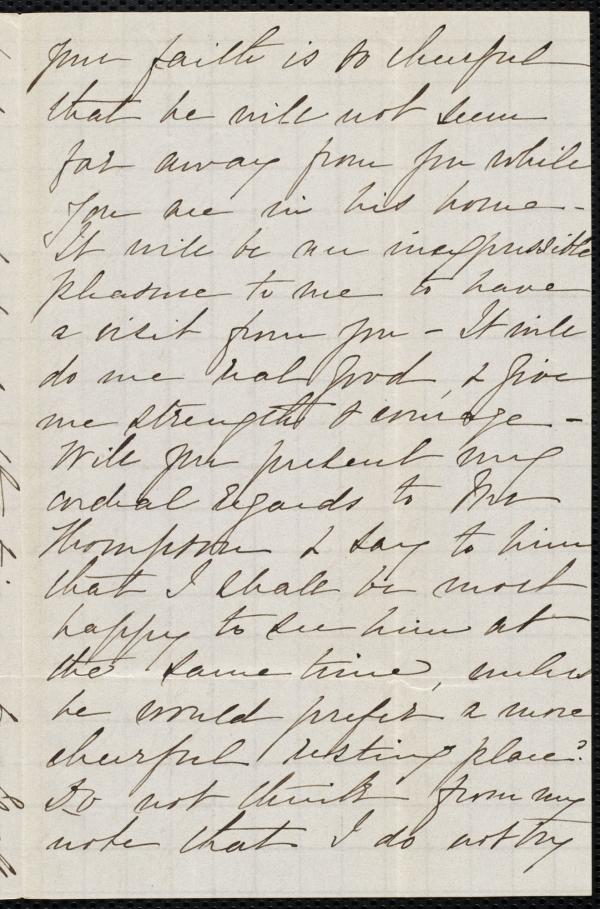 your faith is so cheerful
that he will not seem
far away from you while
you are in his home -
It will be an inexpressible
pleasure to me to have
a visit from you - It will
do me real good, & give
me strength & courage -
Will you present my
cordial regards to Mr
Thompson & say to him
that I shall be most
happy to see him at
the same time, unless
he would prefer a more
cheerful resting place?
Do not think from my
note that I do not try